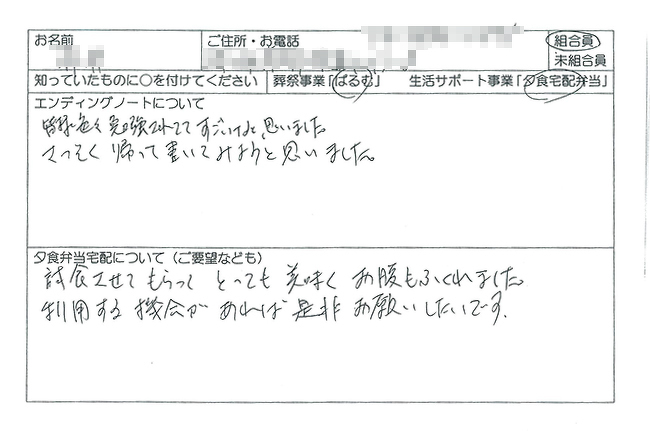 お名前 ご住所・お電話 組合員
未組合員
知っていたものに○を付けてください 葬祭事業「ぱるむ」 生活サポート事業「夕食宅配弁当」
エンディングノートについて
皆様色々勉強されててすごいなと思いました
さっそく帰って書いてみようと思いました。
夕食弁当宅配について（ご要望なども）
試食させてもらって とっても美味くお腹もふくれました
利用する機会があれば是非お願いしたいです。